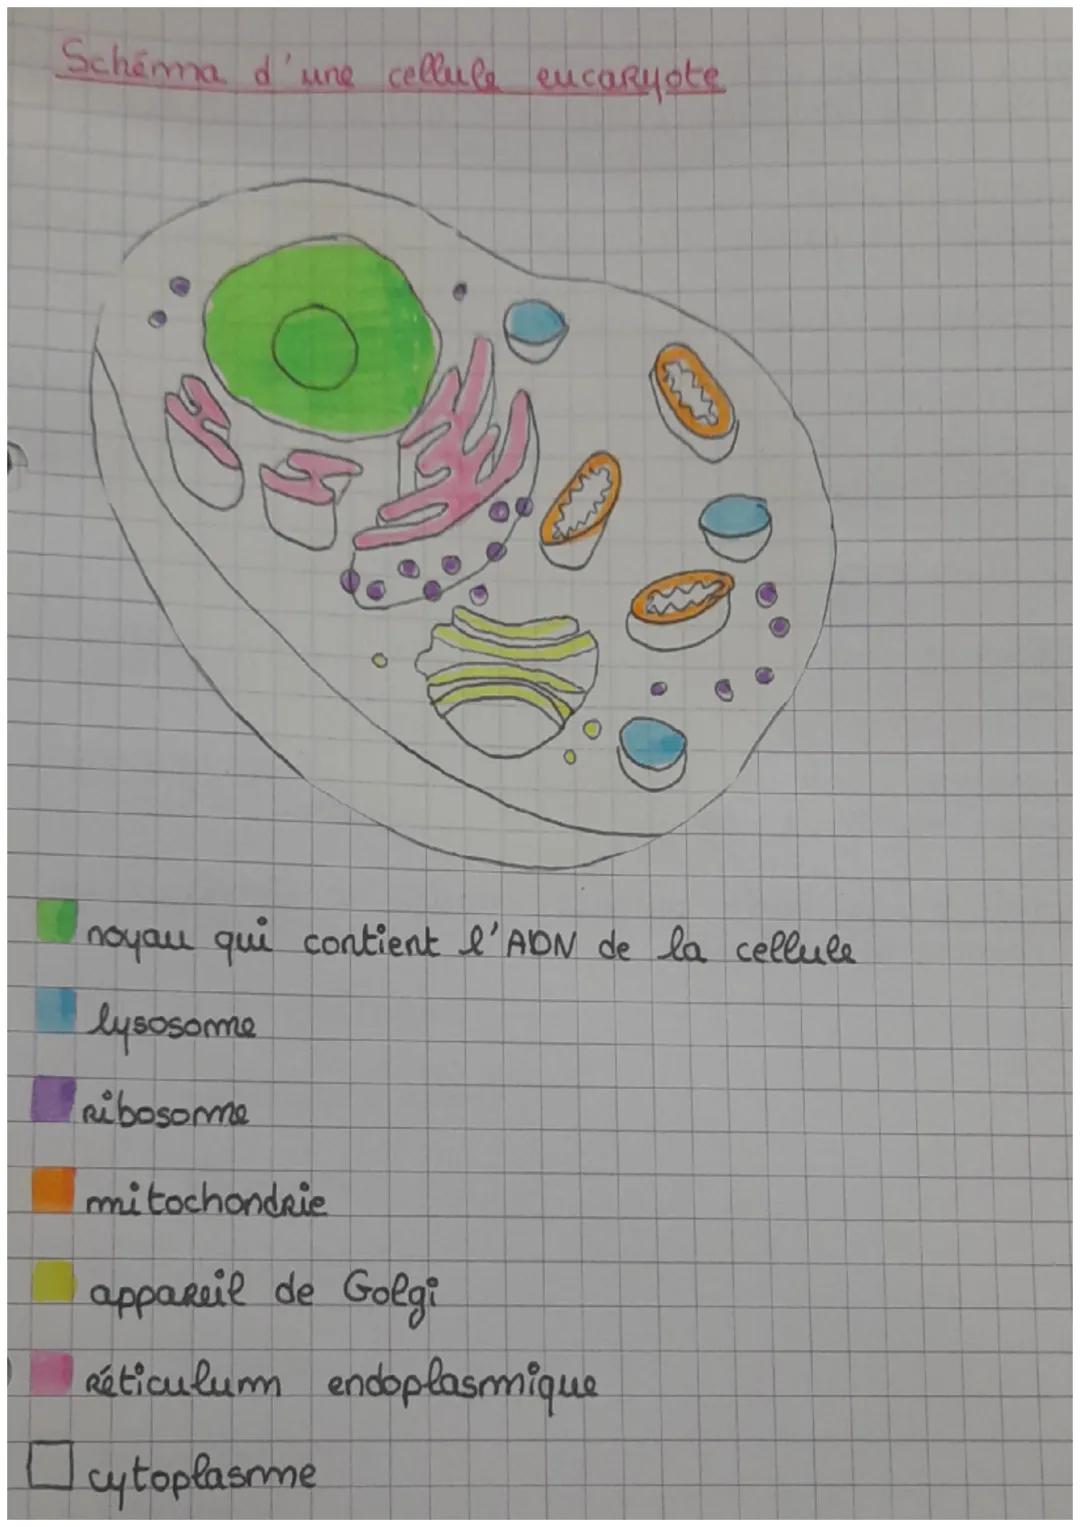 Schéma d'une cellule eucaryote
noyau qui contient l'ADN de la cellule
lysosome
ribosome
mitochondrie
appareil de Golgi
réticulum endoplasmique
cytoplasme